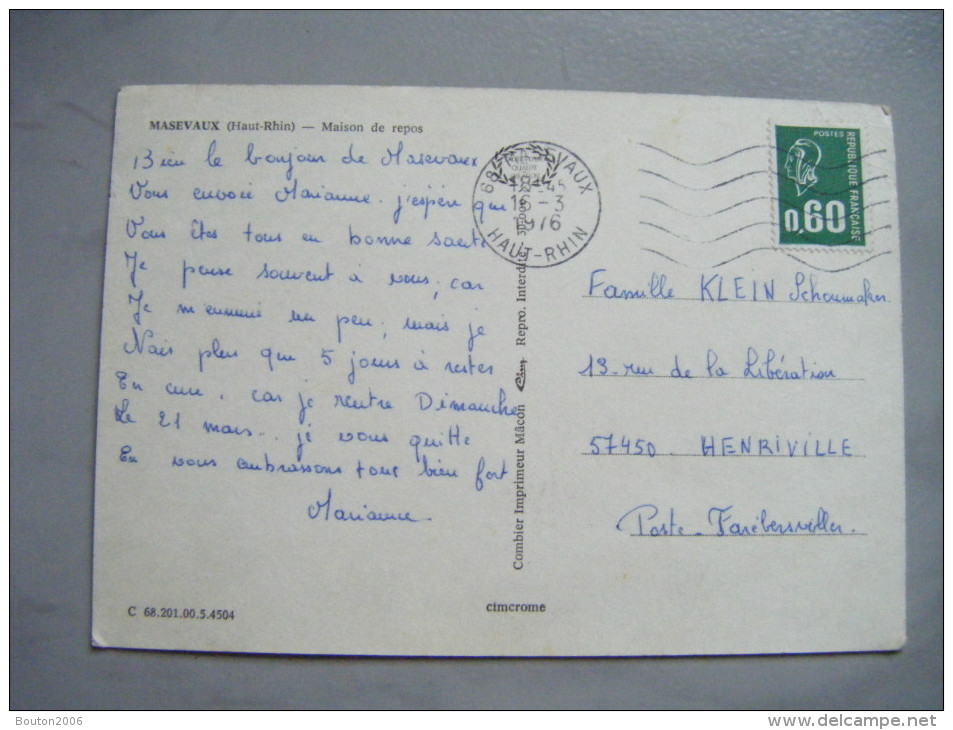 MASEVAUX (Haut-Rhin) — Maison de repos
Bien le bonjour de Masevaux
Vous envoie Marianne. j'espère que
Vous êtes tous en bonne santé
Je pense souvent à vous, car
Je m'ennuie un peu, mais je
N'ais plus que 5 jours à rester
En cure, car je rentre Dimanche
Le 21 mars.. je vous quitte
En vous embrassons tous bien fort
Marianne.
C 68.201.00.5.4504
Combier Imprimeur Mâcon Cim Repro. Interdite
cimcrome
68 MASEVAUX
18-45
16-3
1976
HAUT-RHIN
POSTES
REPUBLIQUE FRANÇAISE
0,60
Famille KLEIN Schoumaker
13 - rue de la Libération
57450 - HENRIVILLE
Poste - Farébersviller.
Bouton2006
www.delcampe.net